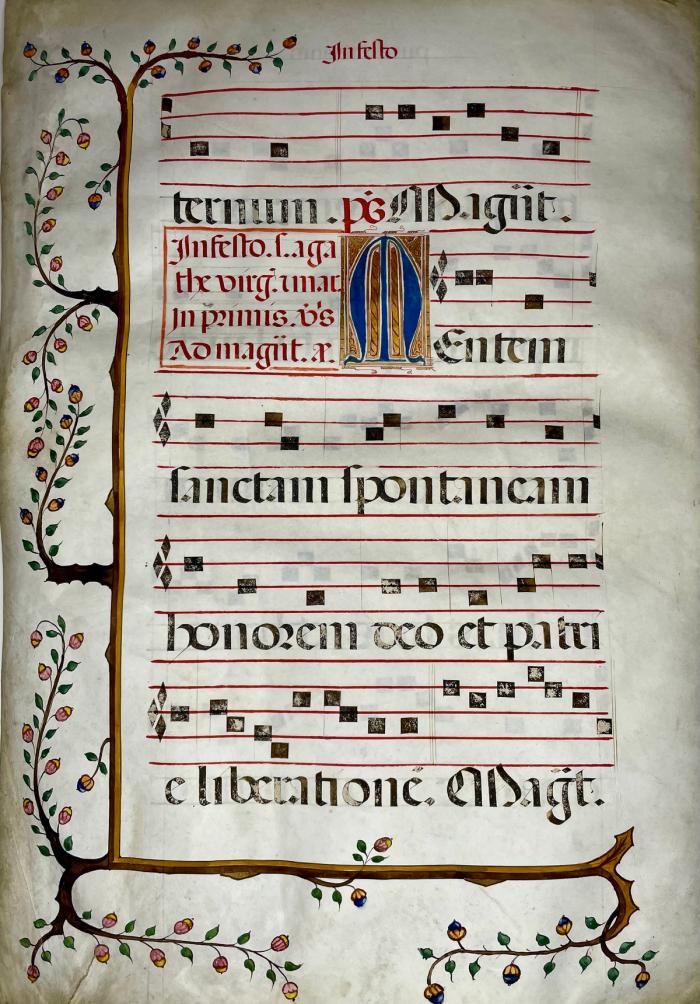 In festo
ternum. ps Magñt.
In festo. s. aga
the virg. τ mar.
In primis. vs̄
Ad magñt. añ.
MEntem
sanctam spontaneam
honorem deo et patri
e liberationē. Mag̃t.